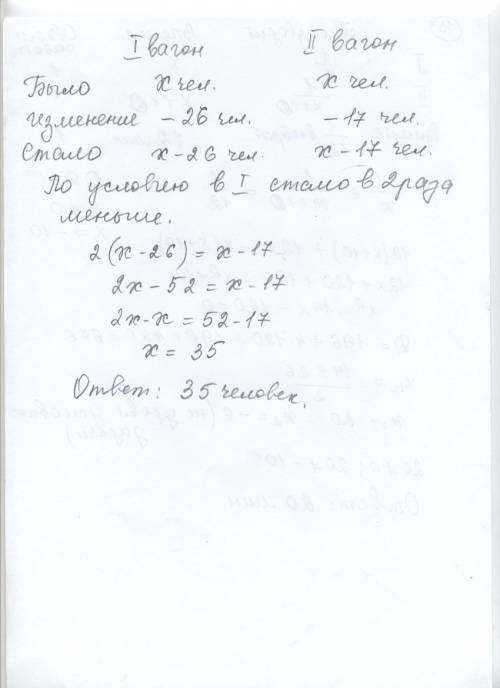 I вагон II вагон
Было x чел. x чел.
изменение - 26 чел. - 17 чел.
Стало x - 26 чел. x - 17 чел.
По условию в I стало в 2 раза
меньше.
2(x - 26) = x - 17
2x - 52 = x - 17
2x - x = 52 - 17
x = 35
Ответ: 35 человек.